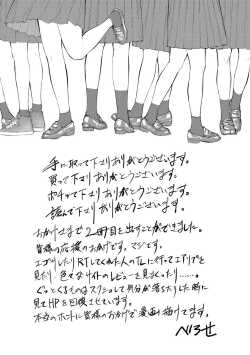 手に取って下さりありがとうございます。
買って下さりありがとうございます。
ポチって下さりありがとうございます。
読んで下さりありがとうございます。
おかげさまで2冊目を出すことができました。
皆様の応援のおかげです。マジです。
エゴサしたりRTしてくれた人のTLに行ってエアリプを
見たり、色んなサイトのレビューを見まくったり……。
ぐっとくるものはスクショして自分が落ちたりした時に
見てHPを回復させています。
本当のホントに皆様のおかげで漫画が描けてます。